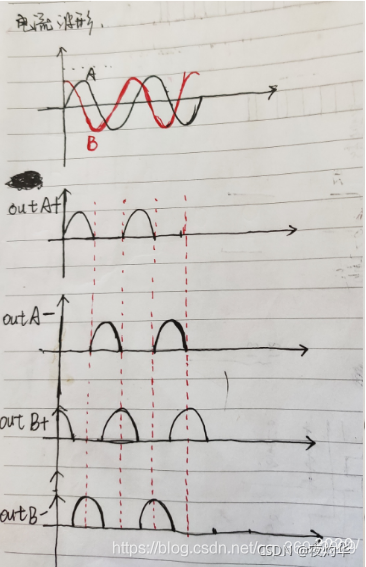 电流波形.
A
B
out A+
out A-
out B+
out B-
https://blog.csdn.net/